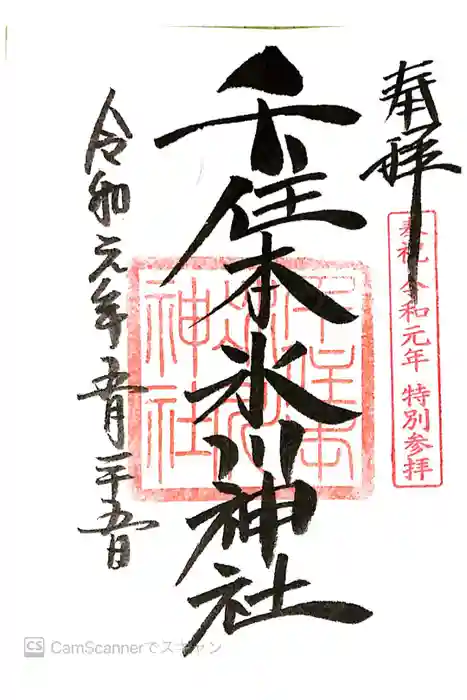 奉拝
奉祝 令和元年 特別参拝
千住本氷川神社
千住本
氷川
神社
令和元年五月二十五日
CS CamScannerでスキャン